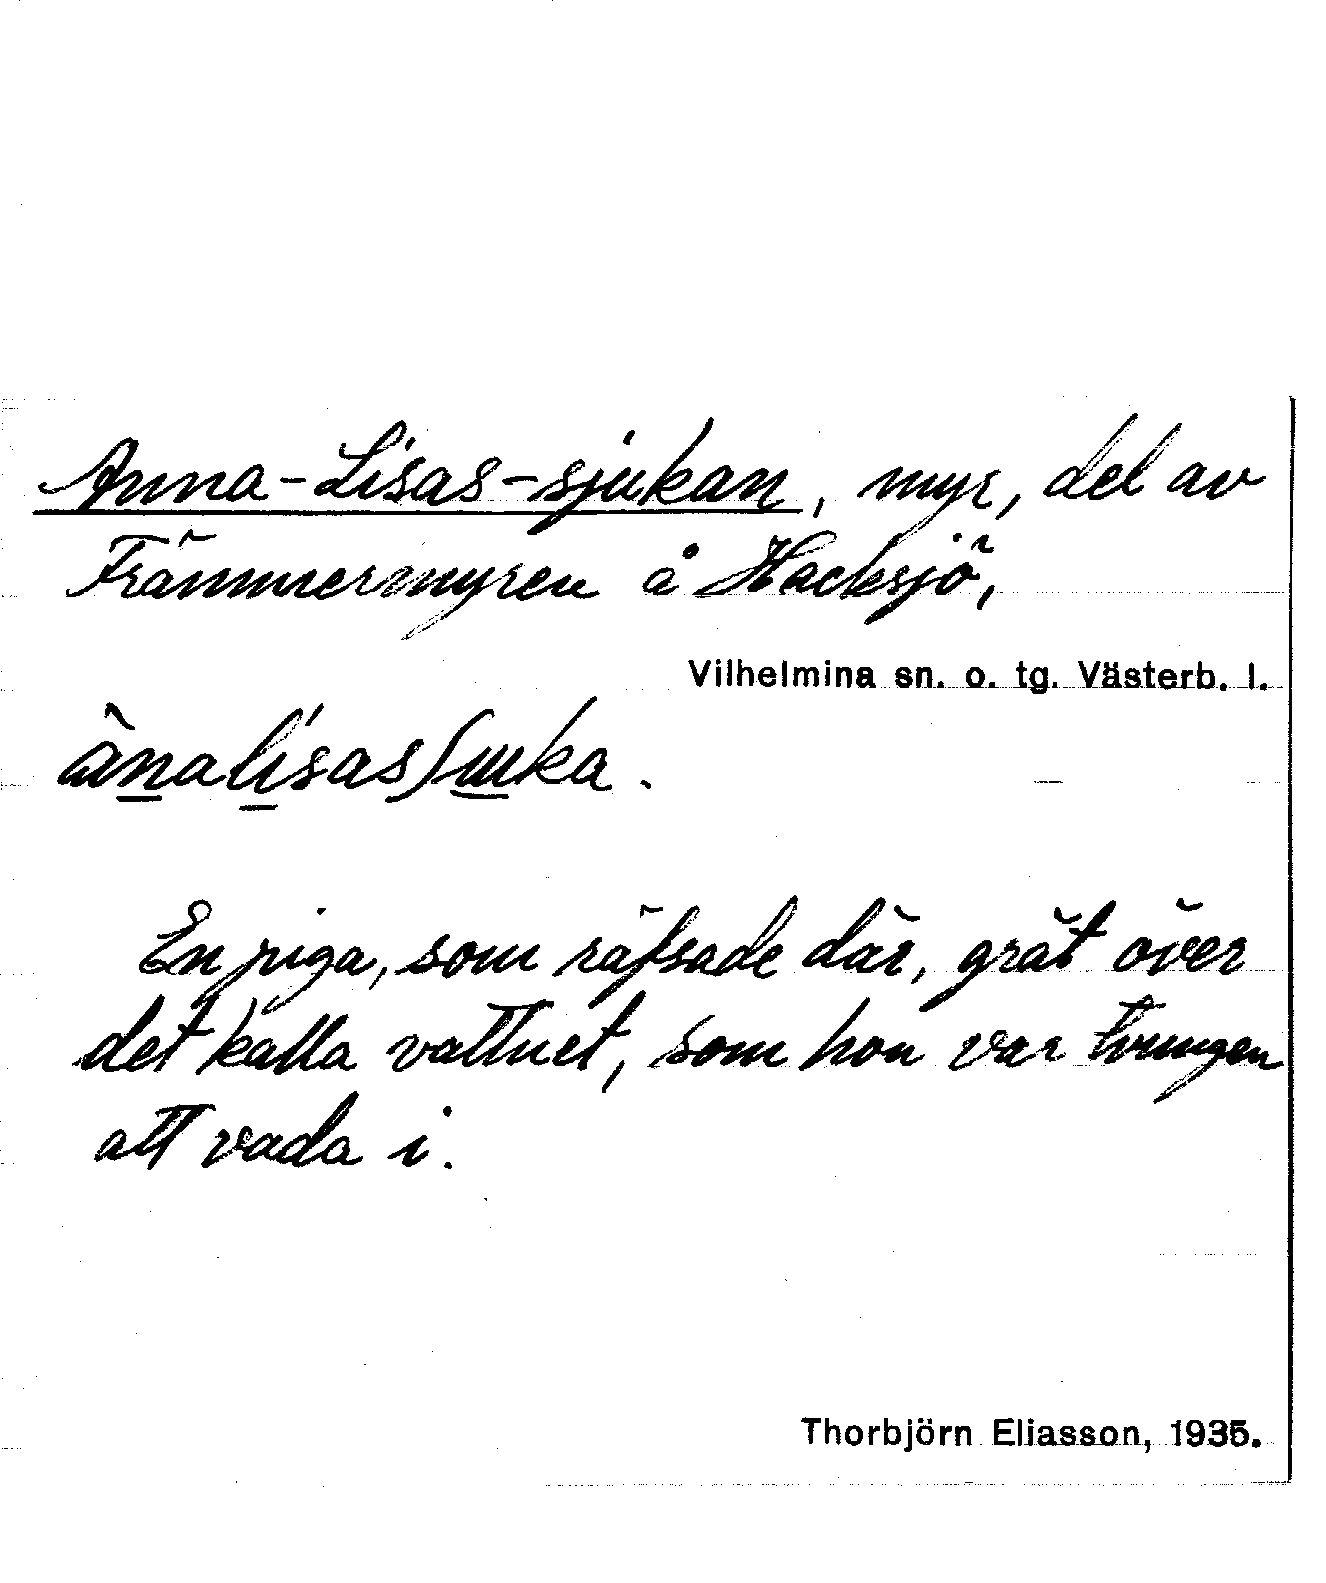 Anna-Lisas-sjukan, myr, del av
Främmermyren å Hacksjö,
Vilhelmina sn. o. tg. Västerb. l.
En piga, som räfsade där, grät över
det kalla vattnet, som hon var tvungen
att vada i.
Thorbjörn Eliasson, 1935.